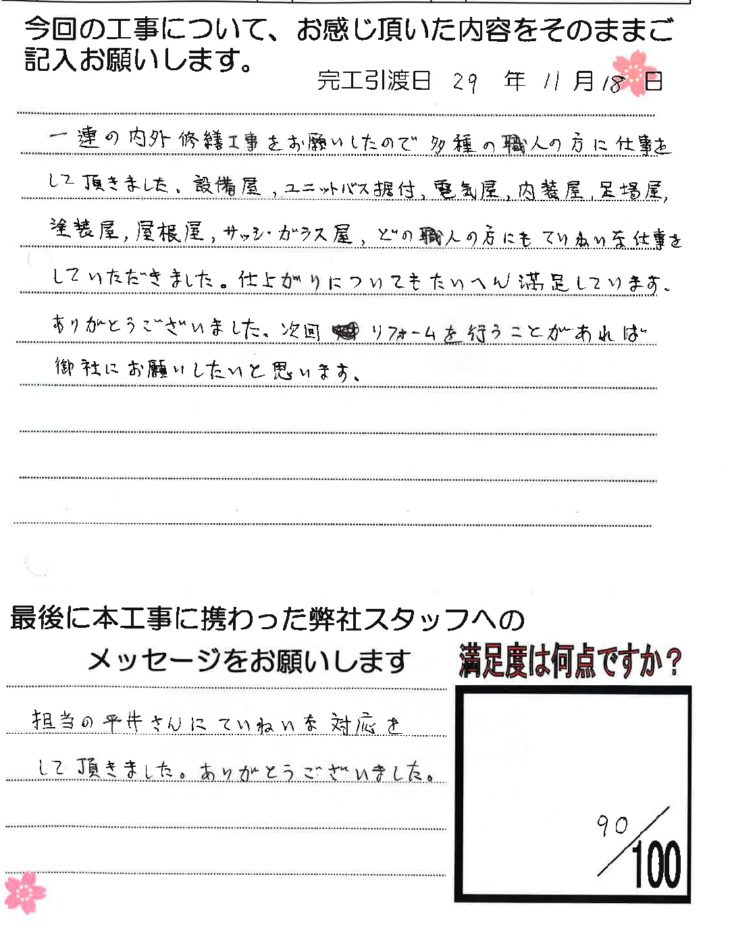 今回の工事について、お感じ頂いた内容をそのままご
記入お願いします。
完工引渡日 29 年 11 月 18 日
一連の内外修繕工事をお願いしたので多種の職人の方に仕事を
して頂きました、設備屋,ユニットバス据付,電気屋,内装屋,足場屋,
塗装屋,屋根屋,サッシ・ガラス屋,どの職人の方にもていねいな仕事を
していただきました。仕上がりについてもたいへん満足しています、
ありがとうございました、次回 リフォームを行うことがあれば
御社にお願いしたいと思います、
最後に本工事に携わった弊社スタッフへの
メッセージをお願いします
満足度は何点ですか?
担当の平井さんにていねいな対応を
して頂きました。ありがとうございました。
90/100